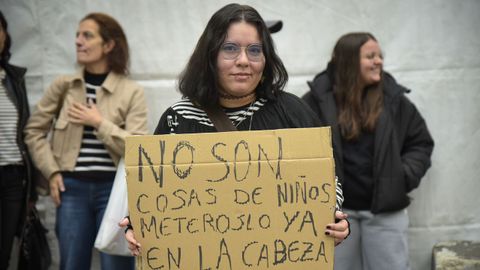 NO SON
COSAS DE NIÑOS
METEROSLO YA
EN LA CABEZA